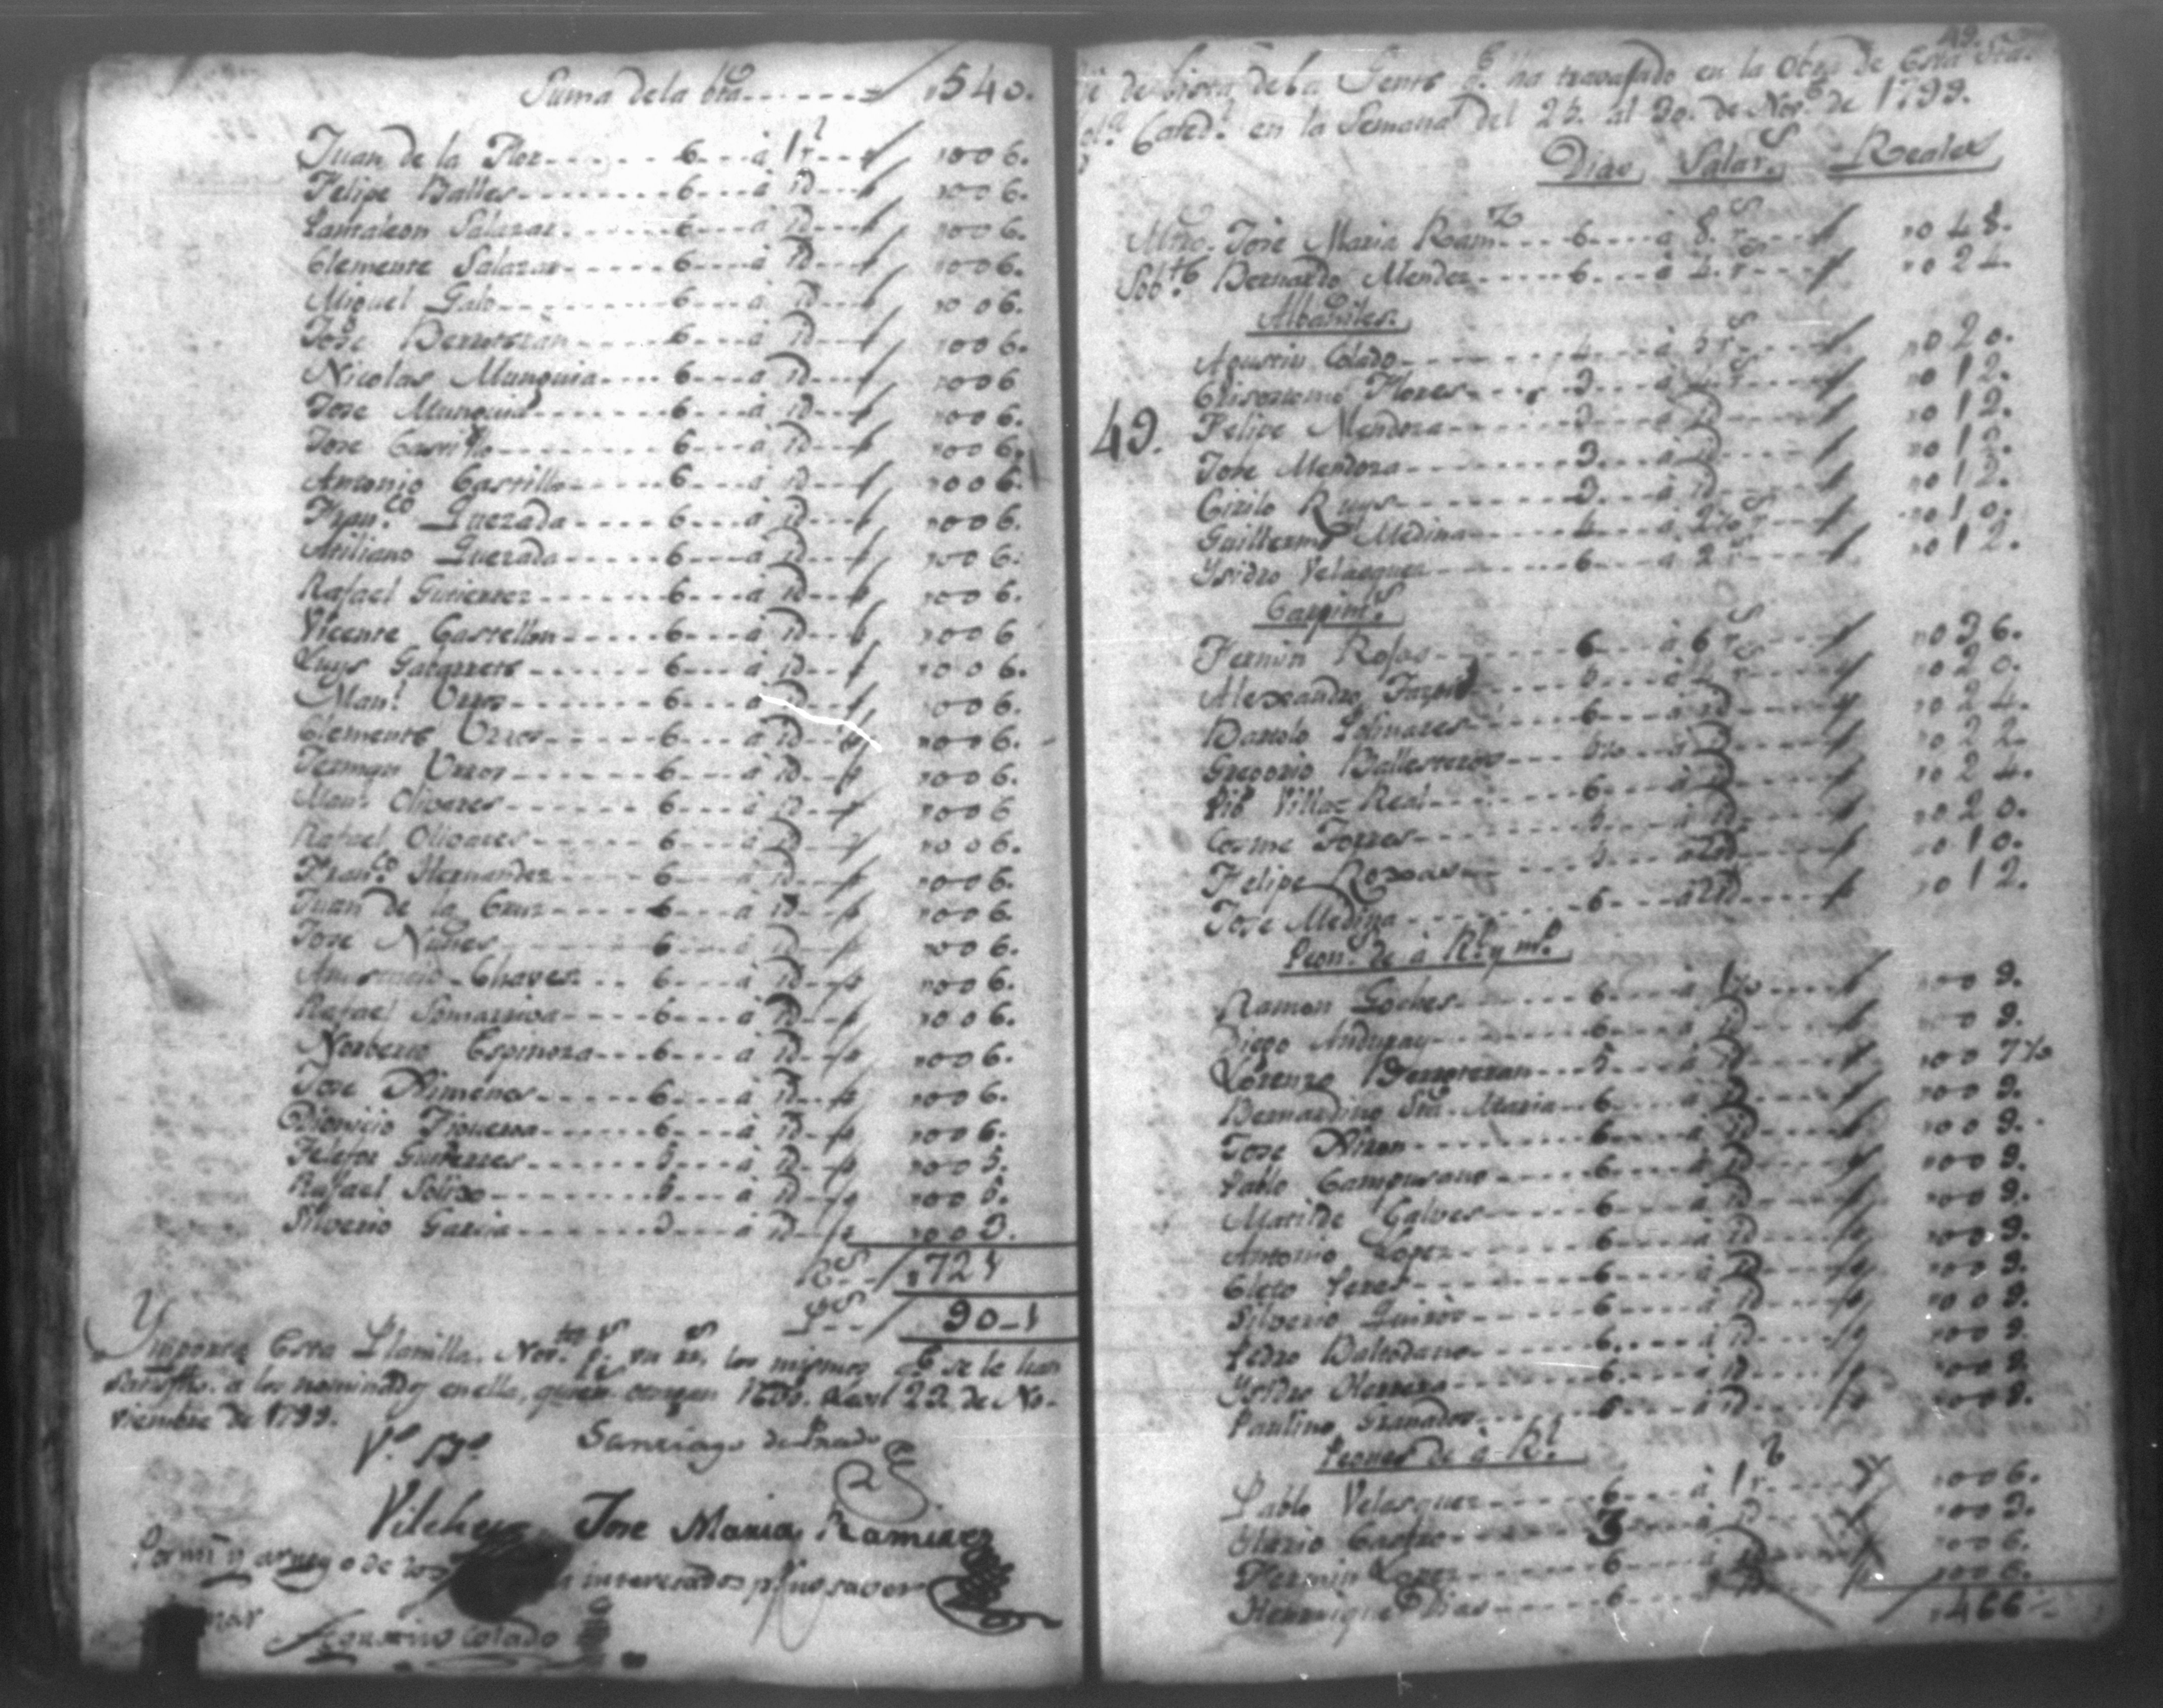 Suma de la bta ‑ ‑ ‑ 540.
Juan de la Flor ‑ ‑ ‑ 6 ‑ ‑ à 1 rl ‑ ‑ 006.
Felipe Balles ‑ ‑ ‑ 6 ‑ ‑ à id ‑ ‑ 006.
Pantaleon Salazar ‑ ‑ ‑ 6 ‑ ‑ à id ‑ ‑ 006.
Clemente Salazar ‑ ‑ ‑ 6 ‑ ‑ à id ‑ ‑ 006.
Miguel Galo ‑ ‑ ‑ 6 ‑ ‑ à id ‑ ‑ 006.
Jose Berroteran ‑ ‑ ‑ 6 ‑ ‑ à id ‑ ‑ 006.
Nicolas Munguia ‑ ‑ ‑ 6 ‑ ‑ à id ‑ ‑ 006
Jose Munguia ‑ ‑ ‑ 6 ‑ ‑ à id ‑ ‑ 006.
Jose Castillo ‑ ‑ ‑ 6 ‑ ‑ à id ‑ ‑ 006.
Antonio Castillo ‑ ‑ ‑ 6 ‑ ‑ à id ‑ ‑ 006.
Fran.co Quezada ‑ ‑ ‑ 6 ‑ ‑ à id ‑ ‑ 006.
Quezada ‑ ‑ ‑ 6 ‑ ‑ à id ‑ ‑ 006.
Rafael Gutierrez ‑ ‑ ‑ 6 ‑ ‑ à id ‑ ‑ 006.
Vicente Castellon ‑ ‑ ‑ 6 ‑ ‑ à id ‑ ‑ 006
Luys ‑ ‑ ‑ 6 ‑ ‑ à id ‑ ‑ 006.
Man.l ‑ ‑ ‑ 6 ‑ ‑ à id ‑ ‑ 006.
Clemente ‑ ‑ ‑ 6 ‑ ‑ à id ‑ ‑ 006.
‑ ‑ ‑ 6 ‑ ‑ à id ‑ ‑ 006.
Man.l Olivares ‑ ‑ ‑ 6 ‑ ‑ à id ‑ ‑ 006
Rafael Olivares ‑ ‑ ‑ 6 ‑ ‑ à id ‑ ‑ 006.
Fran.co Hernandez ‑ ‑ ‑ 6 ‑ ‑ à id ‑ ‑ 006.
Juan de la Cruz ‑ ‑ ‑ 6 ‑ ‑ à id ‑ ‑ 006.
Jose Nuñes ‑ ‑ ‑ 6 ‑ ‑ à id ‑ ‑ 006.
Chaves ‑ ‑ ‑ 6 ‑ ‑ à id ‑ ‑ 006.
Rafael Somarriva ‑ ‑ ‑ 6 ‑ ‑ à id ‑ ‑ 006.
Norberto Espinoza ‑ ‑ ‑ 6 ‑ ‑ à id ‑ ‑ 006.
Jose Ximenes ‑ ‑ ‑ 6 ‑ ‑ à id ‑ ‑ 006.
Dionicio Figueroa ‑ ‑ ‑ 6 ‑ ‑ à id ‑ ‑ 006.
Gutierres ‑ ‑ ‑ 5 ‑ ‑ à id ‑ ‑ 005.
Rafael ‑ ‑ ‑ 5 ‑ ‑ à id ‑ ‑ 005.
Silverio Garcia ‑ ‑ ‑ 3 ‑ ‑ à id ‑ ‑ 003.
Rs ‑ ‑ 721
Ps ‑ ‑ 90‑1
Ymporta Esta Planilla, Nov.ta p.s un r.l los mismos q.e se le han
satisfho. a los nominados en ella, quienes otorgan 23 de No‑
viembre de 1799.
V.o B.o
Santiago de Prado
Vilches
Jose Maria Ramirez
Por mi y a ruego de los interesados p.r no saver
firmar
Agustino Colado
49.
de lista de la Gente q.e ha travajado en la Obra de Esta Sta.
Cated.l en la Semana del 25. al 30. de Nov.e de 1799.
Dias Salar.s Reales
Mtro. Jose Maria Ram.z ‑ ‑ 6 ‑ ‑ à 8. rs ‑ ‑ 048.
Sob.te Bernardo Mendez ‑ ‑ 6 ‑ ‑ à 4. rs ‑ ‑ 024
Albañiles.
Agustin Colado ‑ ‑ 4 ‑ ‑ à 5 rs ‑ ‑ 020.
Crisostomo Flores ‑ ‑ 3 ‑ ‑ à 4 rs ‑ ‑ 012.
49. Felipe Mendoza ‑ ‑ 3 ‑ ‑ à id ‑ ‑ 012.
Jose Mendoza ‑ ‑ 3. ‑ ‑ à id ‑ ‑ 012.
Cirilo Ruys ‑ ‑ 3. ‑ ‑ à id ‑ ‑ 012.
Guillermo Medina ‑ ‑ 4 ‑ ‑ à 2½ rs ‑ ‑ 010.
Ysidro Velasquez ‑ ‑ 6 ‑ ‑ à 2 rs ‑ ‑ 012.
Carpint.s
Fermin Rojas ‑ ‑ 6 ‑ ‑ à 6 rs ‑ ‑ 036.
Alexandro ‑ ‑ 5 ‑ ‑ à 4 rs ‑ ‑ 020.
Bartolo Colinares ‑ ‑ 6 ‑ ‑ à id ‑ ‑ 024.
Gregorio Ballesteros ‑ ‑ 5½ ‑ ‑ à id ‑ ‑ 022
Pio Villa‑Real ‑ ‑ 6 ‑ ‑ à id ‑ ‑ 024.
Cosme Torres ‑ ‑ 5 ‑ ‑ à id ‑ ‑ 020.
Felipe ‑ ‑ 5 ‑ ‑ à 2 ‑ ‑ 010.
Jose Medina ‑ ‑ 6 ‑ ‑ à 2 ‑ ‑ 012.
Peon.s de à Rl. y m.o
Ramon Goches ‑ ‑ 6 ‑ ‑ à 1½ ‑ ‑ 009.
Diego Anduray ‑ ‑ 6 ‑ ‑ à id ‑ ‑ 009.
Lorenzo Berroteran ‑ ‑ 5 ‑ ‑ à id ‑ ‑ 007½
Bernardino Sta. Maria ‑ ‑ 6 ‑ ‑ à id ‑ ‑ 009.
Jose ‑ ‑ 6 ‑ ‑ à id ‑ ‑ 009.
Pablo Campusano ‑ ‑ 6 ‑ ‑ à id ‑ ‑ 009.
Matilde Galves ‑ ‑ 6 ‑ ‑ à id ‑ ‑ 009.
Antonio Lopez ‑ ‑ 6 ‑ ‑ à id ‑ ‑ 009.
Cleto Peres ‑ ‑ 6 ‑ ‑ à id ‑ ‑ 009.
Silverio Quiros ‑ ‑ 6 ‑ ‑ à id ‑ ‑ 009.
Pedro Baltodano ‑ ‑ 6 ‑ ‑ à id ‑ ‑ 009.
Ysidro Herrera ‑ ‑ 6 ‑ ‑ à id ‑ ‑ 009.
Paulino Granados ‑ ‑ 6 ‑ ‑ à id ‑ ‑ 009.
Peones de à Rl.
Pablo Velasquez ‑ ‑ 6 ‑ ‑ à 1 rl ‑ ‑ 006.
Castro ‑ ‑ 3 ‑ ‑ à id ‑ ‑ 003.
Fermin Lopez ‑ ‑ 6 ‑ ‑ à id ‑ ‑ 006.
Henrrique Dias ‑ ‑ 6 ‑ ‑ à id ‑ ‑ 006.
466